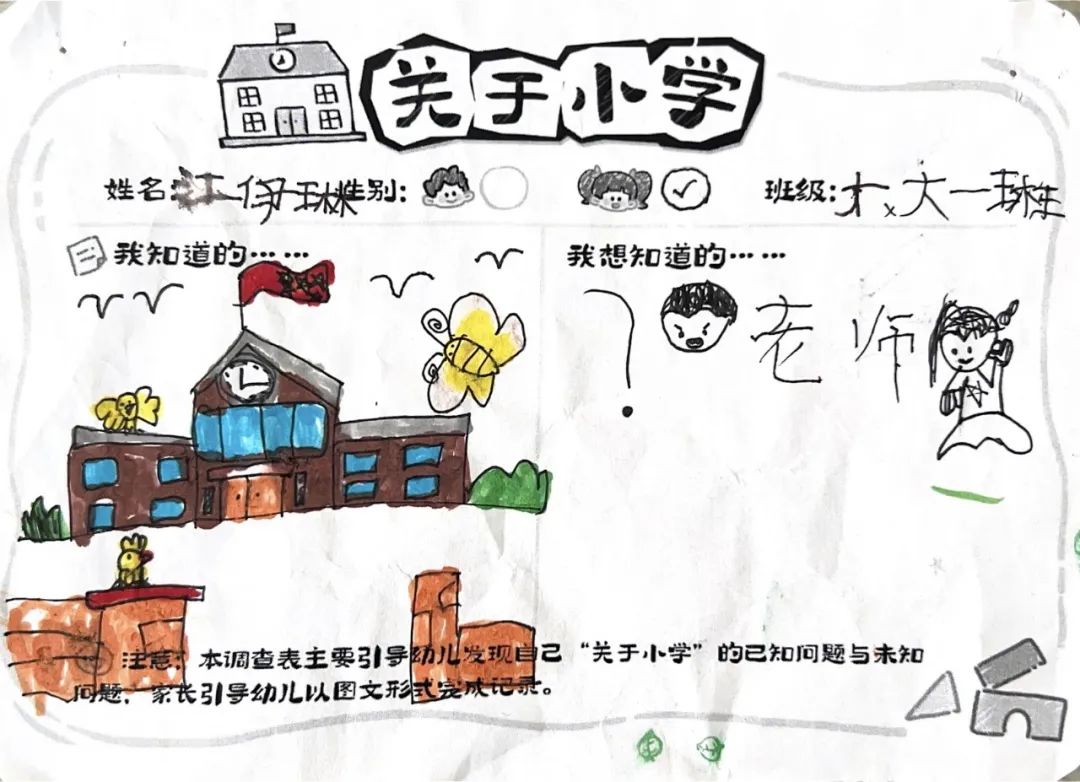 关于小学
姓名:江一伊琳 性别: 班级:大一班
我知道的……
我想知道的……
? 老师
注意：本调查表主要引导幼儿发现自己“关于小学”的已知问题与未知
问题，家长引导幼儿以图文形式完成记录。